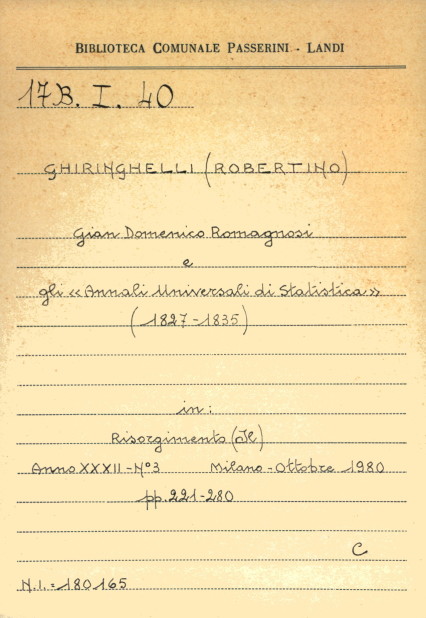 BIBLIOTECA COMUNALE PASSERINI - LANDI
17B. I. 40
GHIRINGHELLI (ROBERTINO)
Gian Domenico Romagnosi
e
gli «Annali Universali di Statistica»
(1827-1835)
in:
Risorgimento (Il)
Anno XXXII - N°3 Milano - Ottobre 1980
pp. 221-280
C
N.I. = 180165